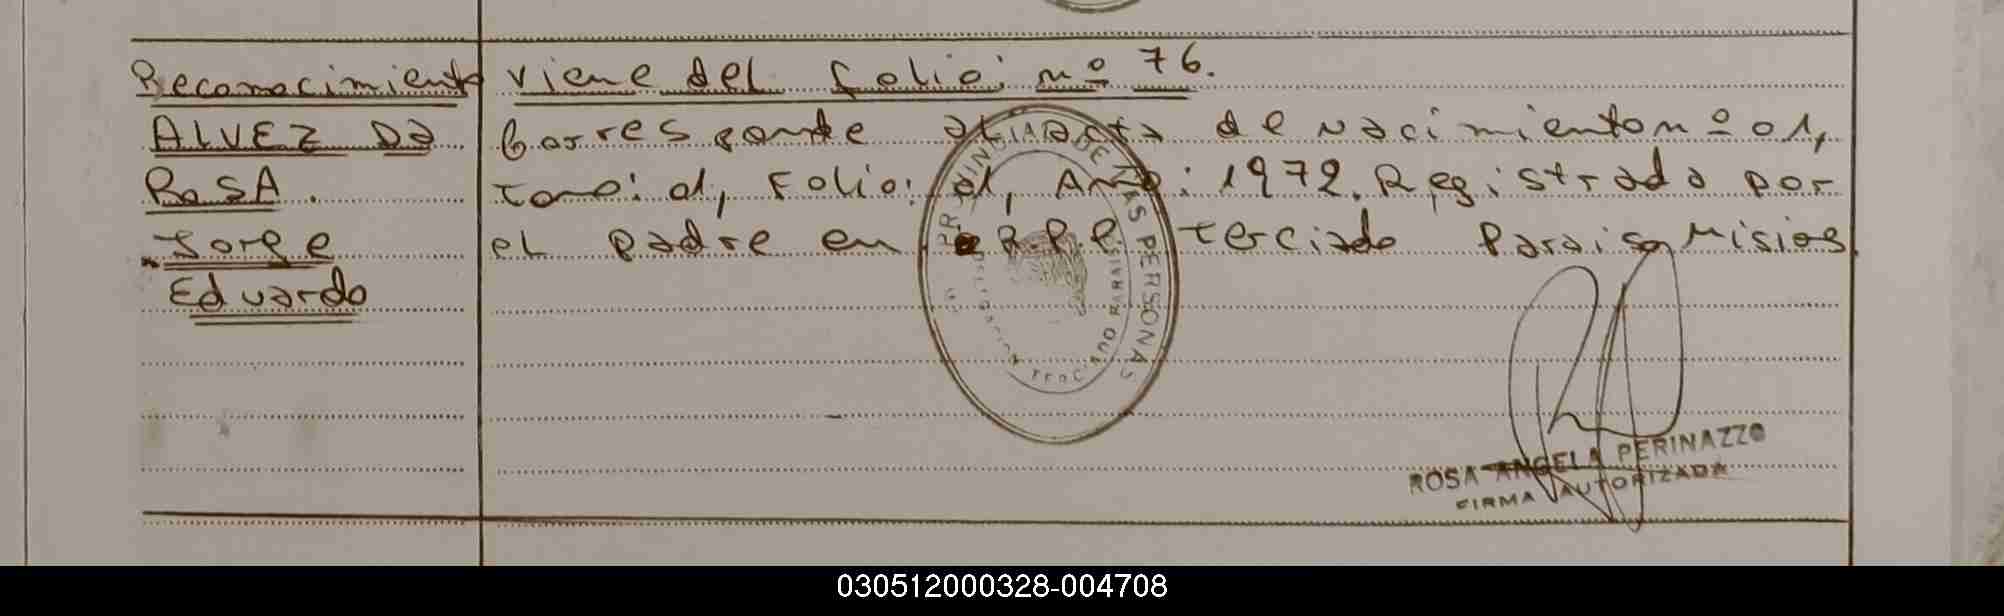 Reconocimiento
ALVEZ Da
RoSA.
Jorge
Eduardo
Viene del folio: nº 76.
Corresponde al acta de nacimiento nº 01,
tomo: 01, Folio: 01, Año: 1972. Registrado por
el padre en R.P.P. terciado Paraiso Misiones
PROVINCIAL DE LAS PERSONAS
DELEGACION TERCIADO PARAISO
ROSA ANGELA PERINAZZO
FIRMA AUTORIZADA
030512000328-004708